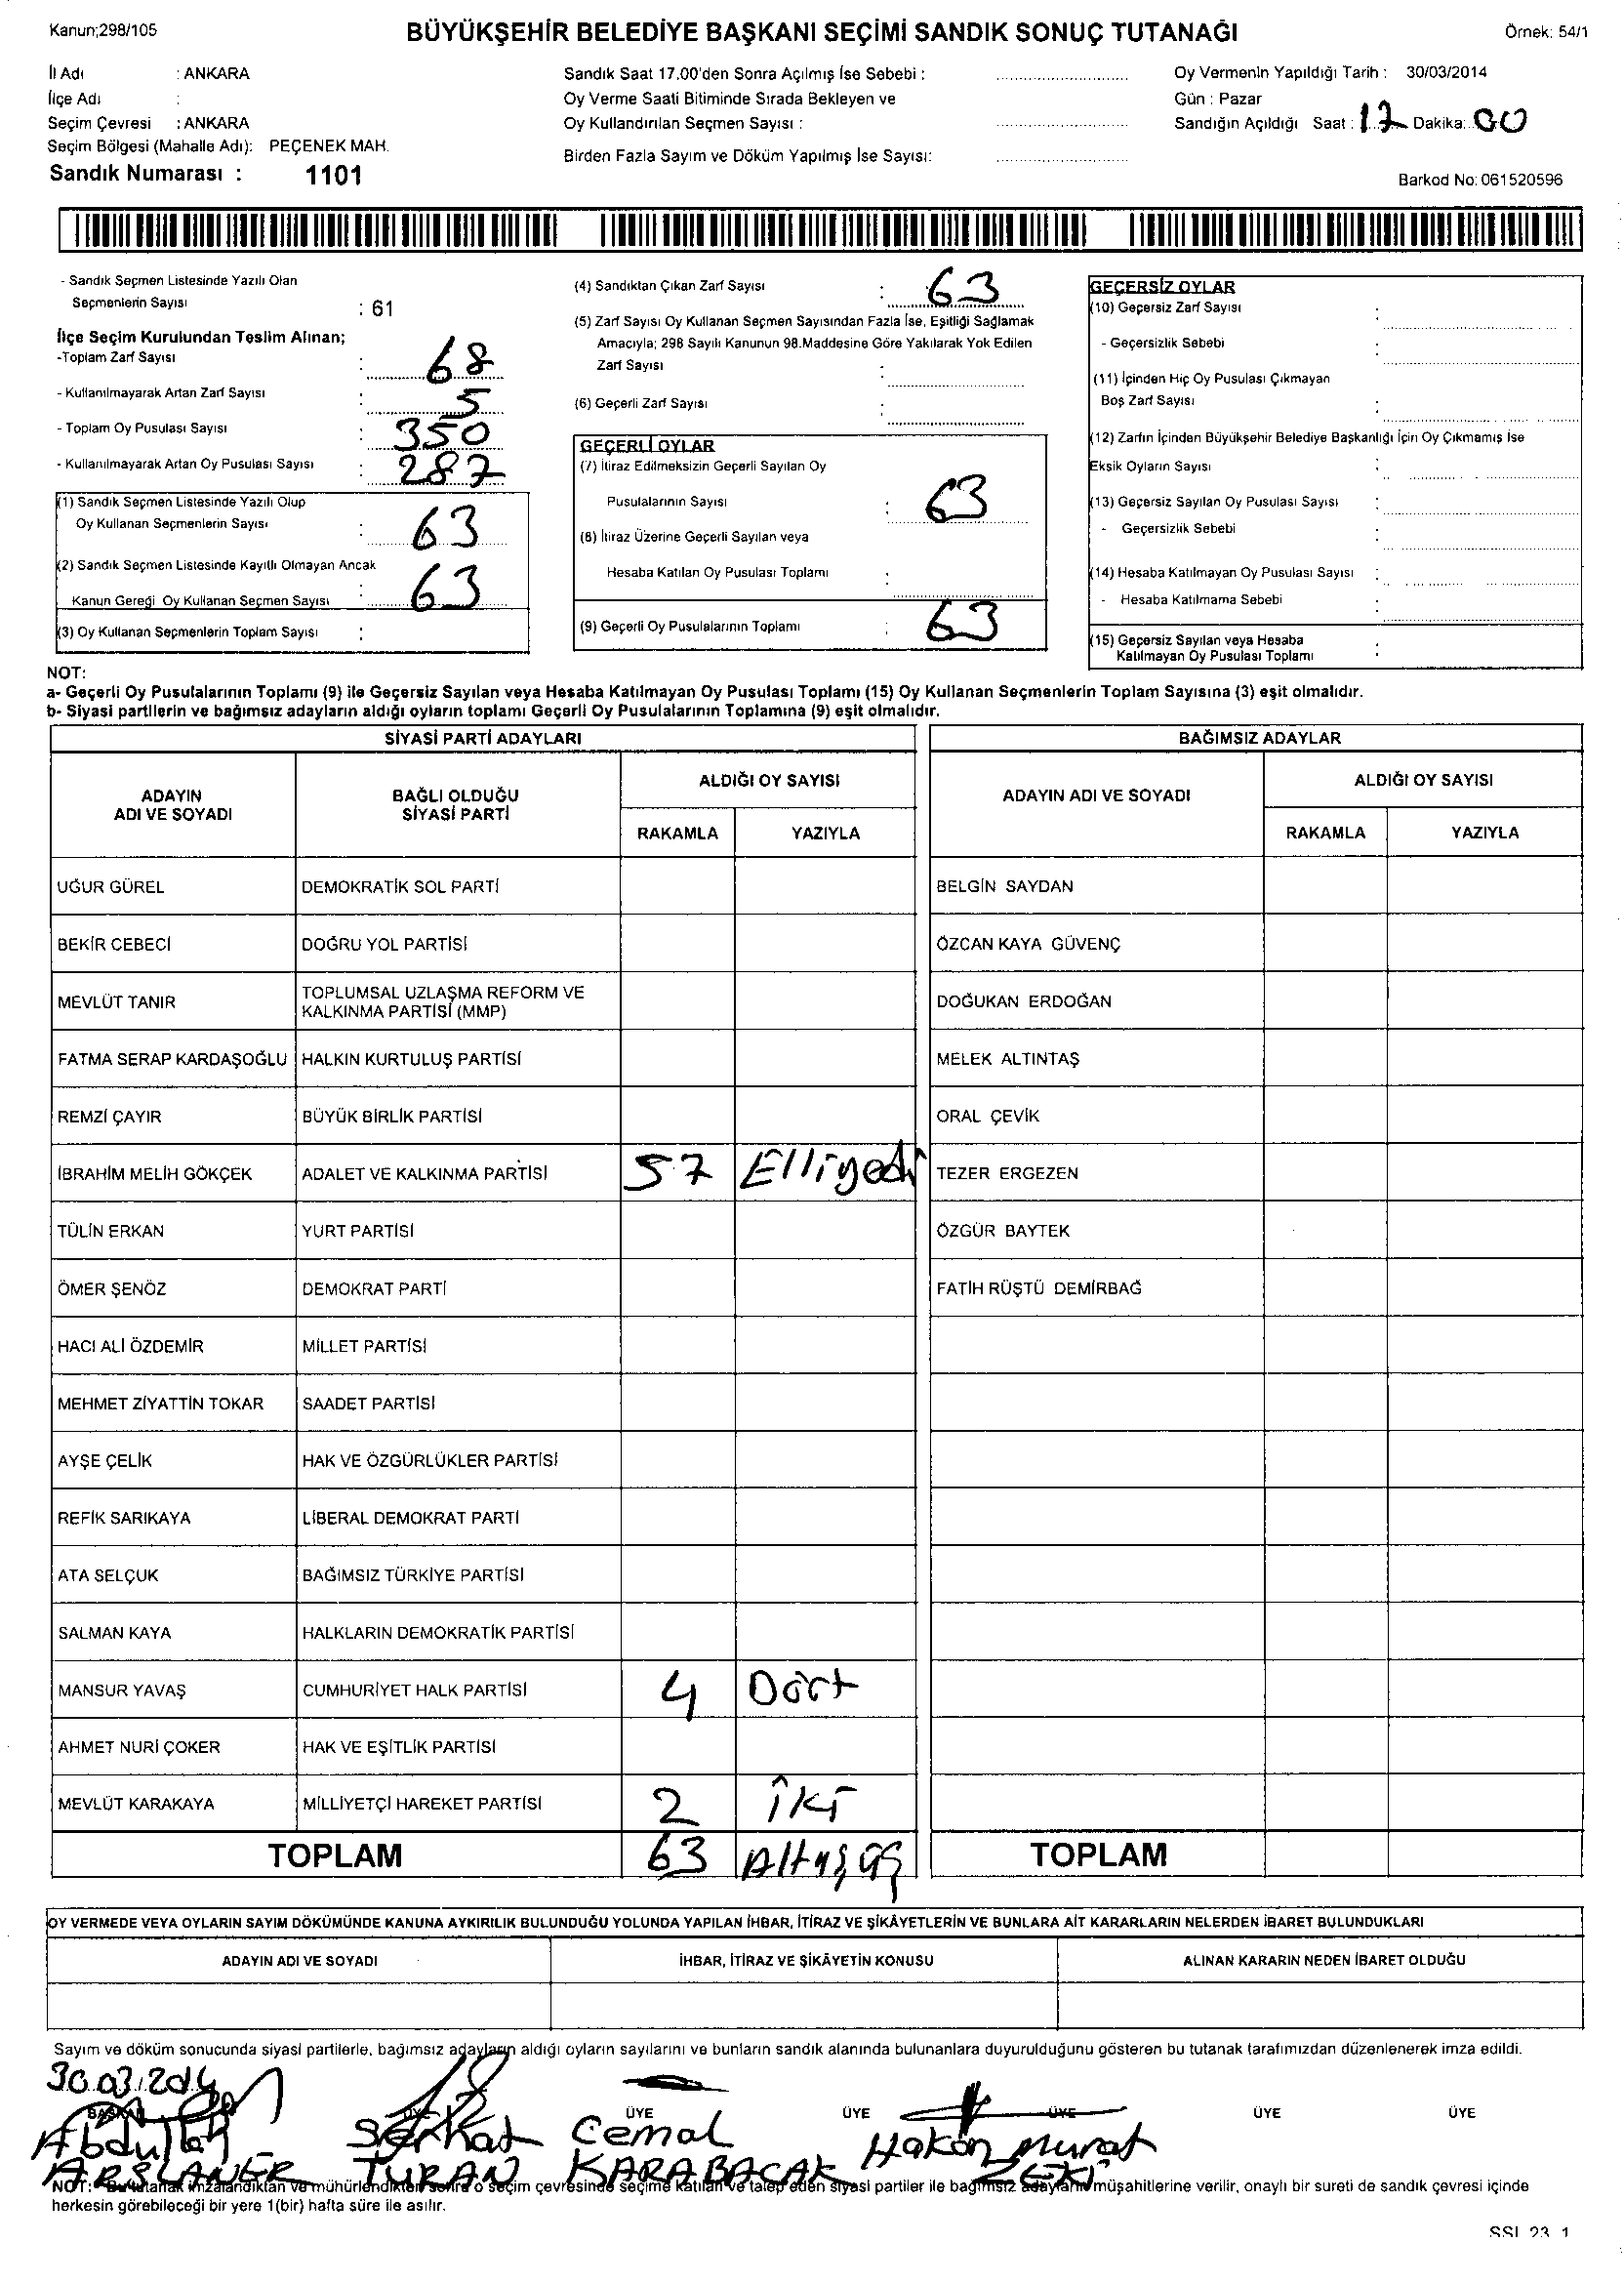 Kanun;298/105
BÜYÜKŞEHİR BELEDİYE BAŞKANI SEÇİMİ SANDIK SONUÇ TUTANAĞI
Örnek: 54/1
İl Adı : ANKARA
İlçe Adı :
Seçim Çevresi : ANKARA
Seçim Bölgesi (Mahalle Adı): PEÇENEK MAH.
Sandık Numarası : 1101
Sandık Saat 17.00'den Sonra Açılmış İse Sebebi :
Oy Verme Saati Bitiminde Sırada Bekleyen ve
Oy Kullandırılan Seçmen Sayısı :
Birden Fazla Sayım ve Döküm Yapılmış İse Sayısı:
Oy Vermenin Yapıldığı Tarih : 30/03/2014
Gün : Pazar
Sandığın Açıldığı Saat : 17 Dakika: 00
Barkod No: 061520596
- Sandık Seçmen Listesinde Yazılı Olan
Seçmenlerin Sayısı : 61
İlçe Seçim Kurulundan Teslim Alınan;
-Toplam Zarf Sayısı : 68
- Kullanılmayarak Artan Zarf Sayısı : 5
- Toplam Oy Pusulası Sayısı : 350
- Kullanılmayarak Artan Oy Pusulası Sayısı : 287
(1) Sandık Seçmen Listesinde Yazılı Olup
Oy Kullanan Seçmenlerin Sayısı : 63
(2) Sandık Seçmen Listesinde Kayıtlı Olmayan Ancak
Kanun Gereği Oy Kullanan Seçmen Sayısı : 63
(3) Oy Kullanan Seçmenlerin Toplam Sayısı :
(4) Sandıktan Çıkan Zarf Sayısı : 63
(5) Zarf Sayısı Oy Kullanan Seçmen Sayısından Fazla İse, Eşitliği Sağlamak
Amacıyla; 298 Sayılı Kanunun 98.Maddesine Göre Yakılarak Yok Edilen
Zarf Sayısı :
(6) Geçerli Zarf Sayısı :
GEÇERLİ OYLAR
(7) İtiraz Edilmeksizin Geçerli Sayılan Oy
Pusulalarının Sayısı : 63
(8) İtiraz Üzerine Geçerli Sayılan veya
Hesaba Katılan Oy Pusulası Toplamı :
(9) Geçerli Oy Pusulalarının Toplamı : 63
GEÇERSİZ OYLAR
(10) Geçersiz Zarf Sayısı :
- Geçersizlik Sebebi :
(11) İçinden Hiç Oy Pusulası Çıkmayan
Boş Zarf Sayısı :
(12) Zarfın İçinden Büyükşehir Belediye Başkanlığı İçin Oy Çıkmamış İse
Eksik Oyların Sayısı :
(13) Geçersiz Sayılan Oy Pusulası Sayısı :
- Geçersizlik Sebebi :
(14) Hesaba Katılmayan Oy Pusulası Sayısı :
- Hesaba Katılmama Sebebi :
(15) Geçersiz Sayılan veya Hesaba
Katılmayan Oy Pusulası Toplamı :
NOT:
a- Geçerli Oy Pusulalarının Toplamı (9) ile Geçersiz Sayılan veya Hesaba Katılmayan Oy Pusulası Toplamı (15) Oy Kullanan Seçmenlerin Toplam Sayısına (3) eşit olmalıdır.
b- Siyasi partilerin ve bağımsız adayların aldığı oyların toplamı Geçerli Oy Pusulalarının Toplamına (9) eşit olmalıdır.
SİYASİ PARTİ ADAYLARI
ADAYIN ADI VE SOYADI BAĞLI OLDUĞU SİYASİ PARTİ ALDIĞI OY SAYISI
RAKAMLA YAZIYLA
UĞUR GÜREL DEMOKRATİK SOL PARTİ
BEKİR CEBECİ DOĞRU YOL PARTİSİ
MEVLÜT TANIR TOPLUMSAL UZLAŞMA REFORM VE KALKINMA PARTİSİ (MMP)
FATMA SERAP KARDAŞOĞLU HALKIN KURTULUŞ PARTİSİ
REMZİ ÇAYIR BÜYÜK BİRLİK PARTİSİ
İBRAHİM MELİH GÖKÇEK ADALET VE KALKINMA PARTİSİ 57 Elliyedi
TÜLİN ERKAN YURT PARTİSİ
ÖMER ŞENÖZ DEMOKRAT PARTİ
HACI ALİ ÖZDEMİR MİLLET PARTİSİ
MEHMET ZİYATTİN TOKAR SAADET PARTİSİ
AYŞE ÇELİK HAK VE ÖZGÜRLÜKLER PARTİSİ
REFİK SARIKAYA LİBERAL DEMOKRAT PARTİ
ATA SELÇUK BAĞIMSIZ TÜRKİYE PARTİSİ
SALMAN KAYA HALKLARIN DEMOKRATİK PARTİSİ
MANSUR YAVAŞ CUMHURİYET HALK PARTİSİ 4 Dört
AHMET NURİ ÇOKER HAK VE EŞİTLİK PARTİSİ
MEVLÜT KARAKAYA MİLLİYETÇİ HAREKET PARTİSİ 2 iki
TOPLAM 63
BAĞIMSIZ ADAYLAR
ADAYIN ADI VE SOYADI ALDIĞI OY SAYISI
RAKAMLA YAZIYLA
BELGİN SAYDAN
ÖZCAN KAYA GÜVENÇ
DOĞUKAN ERDOĞAN
MELEK ALTINTAŞ
ORAL ÇEVİK
TEZER ERGEZEN
ÖZGÜR BAYTEK
FATİH RÜŞTÜ DEMİRBAĞ
TOPLAM
OY VERMEDE VEYA OYLARIN SAYIM DÖKÜMÜNDE KANUNA AYKIRILIK BULUNDUĞU YOLUNDA YAPILAN İHBAR, İTİRAZ VE ŞİKÂYETLERİN VE BUNLARA AİT KARARLARIN NELERDEN İBARET BULUNDUKLARI
ADAYIN ADI VE SOYADI İHBAR, İTİRAZ VE ŞİKÂYETİN KONUSU ALINAN KARARIN NEDEN İBARET OLDUĞU
Sayım ve döküm sonucunda siyasi partilerle, bağımsız adayların aldığı oyların sayılarını ve bunların sandık alanında bulunanlara duyurulduğunu gösteren bu tutanak tarafımızdan düzenlenerek imza edildi.
30.03.2014
BAŞKAN ÜYE ÜYE ÜYE ÜYE ÜYE ÜYE
Abdullah Serkat Cemal Hakan Murat
ARSLANER TURAN KARABACAK ZEKİ
NOT: Bu tutanak imzalandıktan ve mühürlendikten sonra o seçim çevresinde seçime katılan ve talep eden siyasi partiler ile bağımsız adayların müşahitlerine verilir, onaylı bir sureti de sandık çevresi içinde
herkesin görebileceği bir yere 1(bir) hafta süre ile asılır.
SSI 23 1